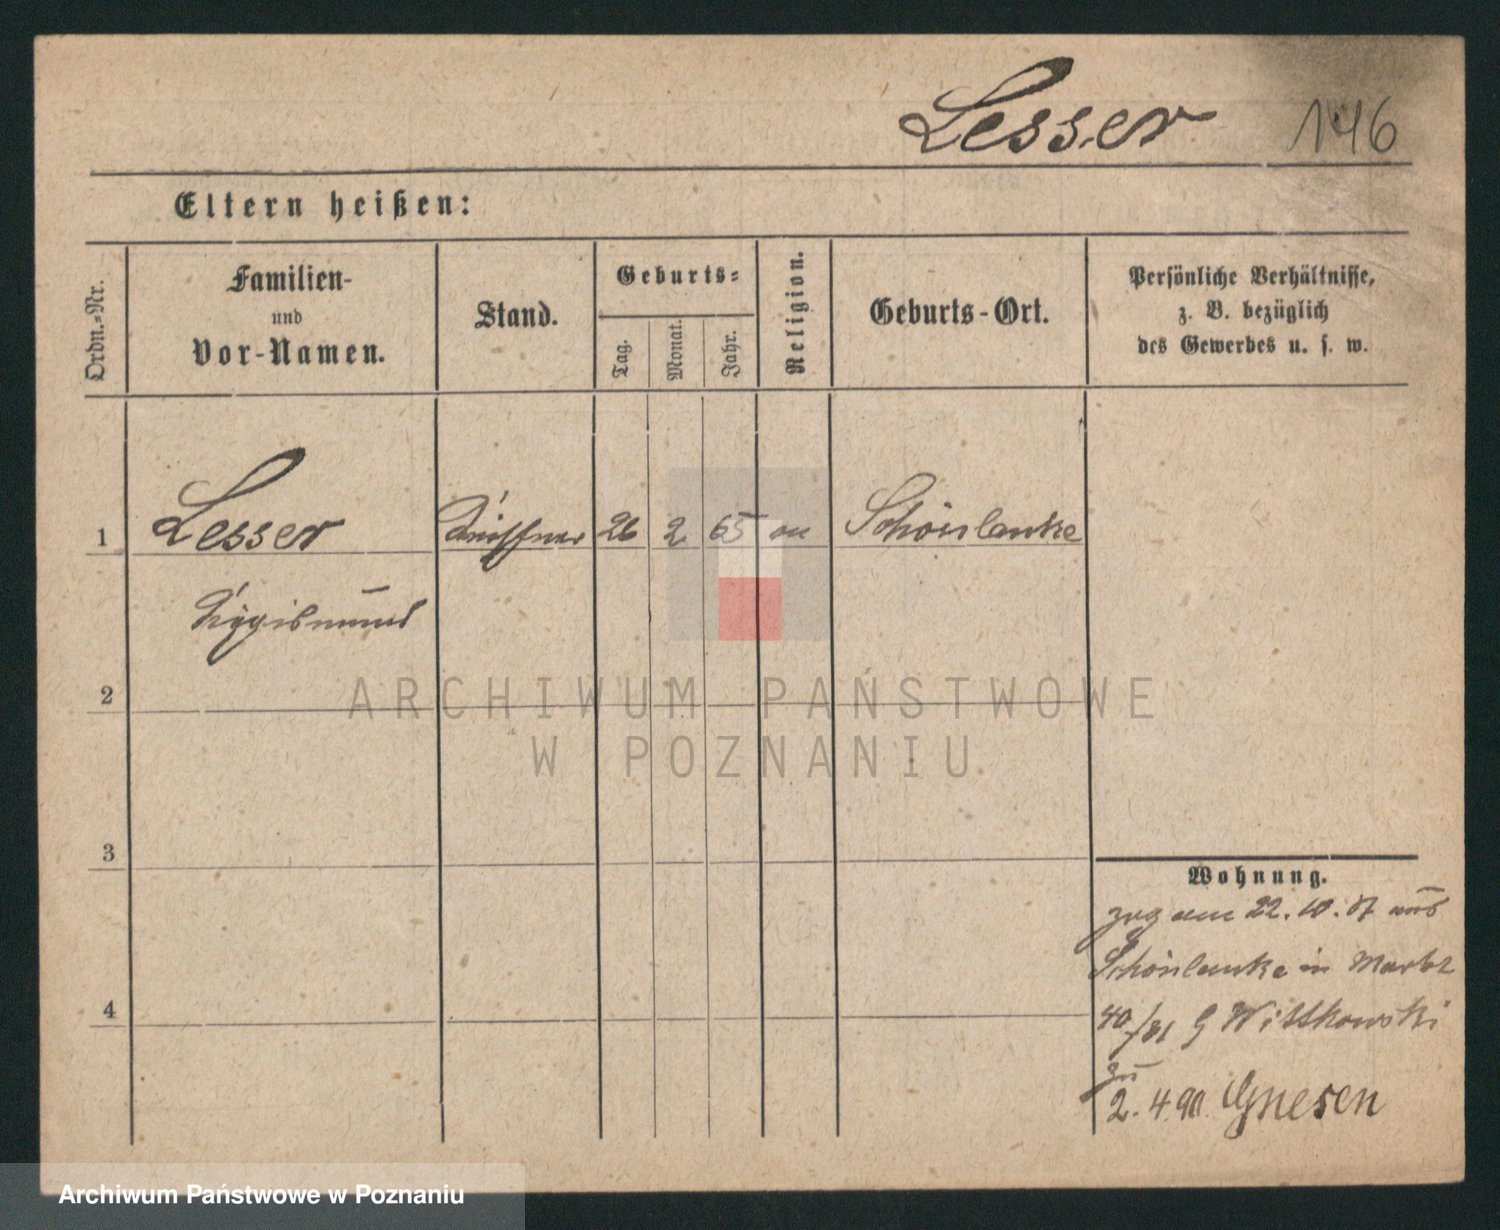 Lesser 146
Eltern heißen:
Ordn.-Nr.
Familien-
und
Vor-Namen.
Stand.
Geburts-
Tag.
Monat.
Jahr.
Religion.
Geburts-Ort.
Persönliche Verhältnisse,
z. B. bezüglich
des Gewerbes u. s. w.
1 Lesser 26 2 65 Schönlanke
Sigismund
2
3
4
Wohnung.
zog am 22.10.87 aus
Schönlanke in Markt
40/81 Wittkowski
2.4.90. Gnesen
ARCHIWUM PAŃSTWOWE
W POZNANIU
Archiwum Państwowe w Poznaniu